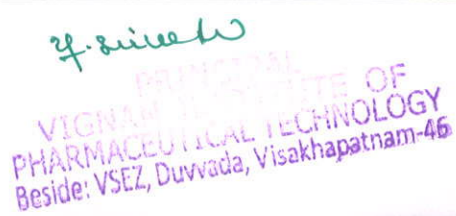 PRINCIPAL
VIGNAN INSTITUTE OF
PHARMACEUTICAL TECHNOLOGY
Beside: VSEZ, Duvvada, Visakhapatnam-46